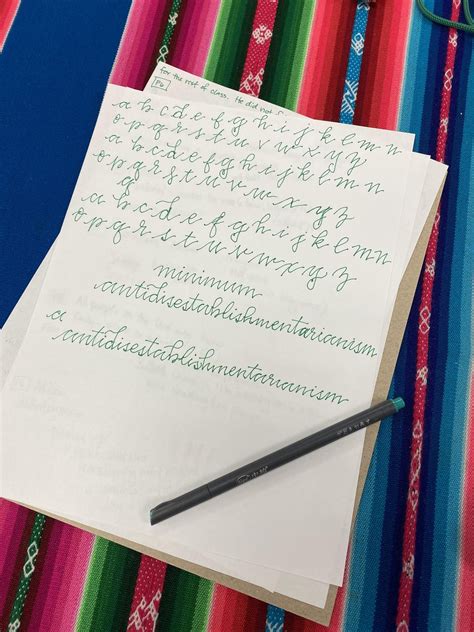 for the rest of class. He did not
a b c d e f g h i j k l m n
o p q r s t u v w x y z
a b c d e f g h i j k l m n
o p q r s t u v w x y z
g
a b c d e f g h i j k l m n
o p q r s t u v w x y z
minimum
antidisestablishmentarianism
a
antidisestablishmentarianism